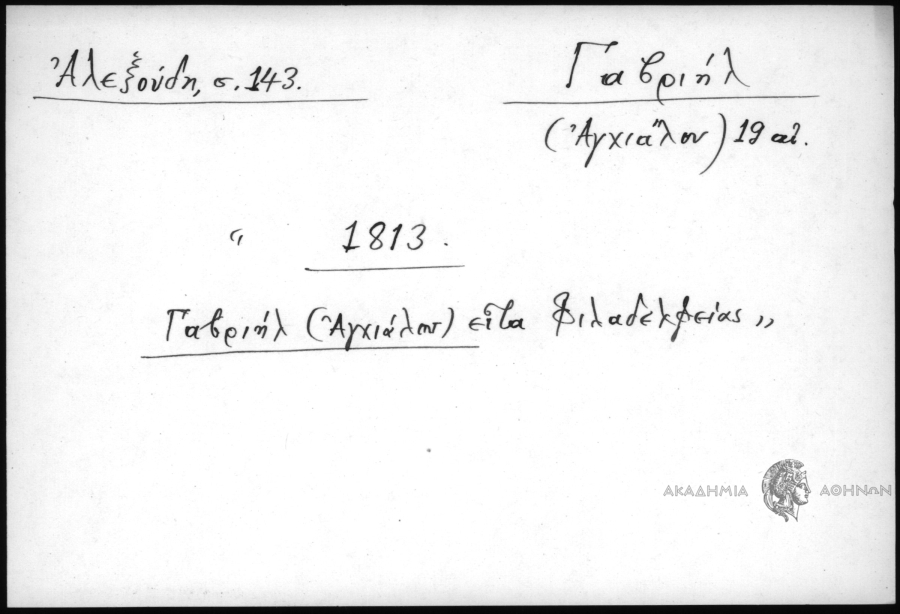 Ἀλεξούδη, σ. 143.
Γαβριήλ
(Ἀγχιάλου) 19 αἰ.
“ 1813.
Γαβριήλ (Ἀγχιάλου) εἶτα Φιλαδελφείας „
ΑΚΑΔΗΜΙΑ ΑΘΗΝΩΝ